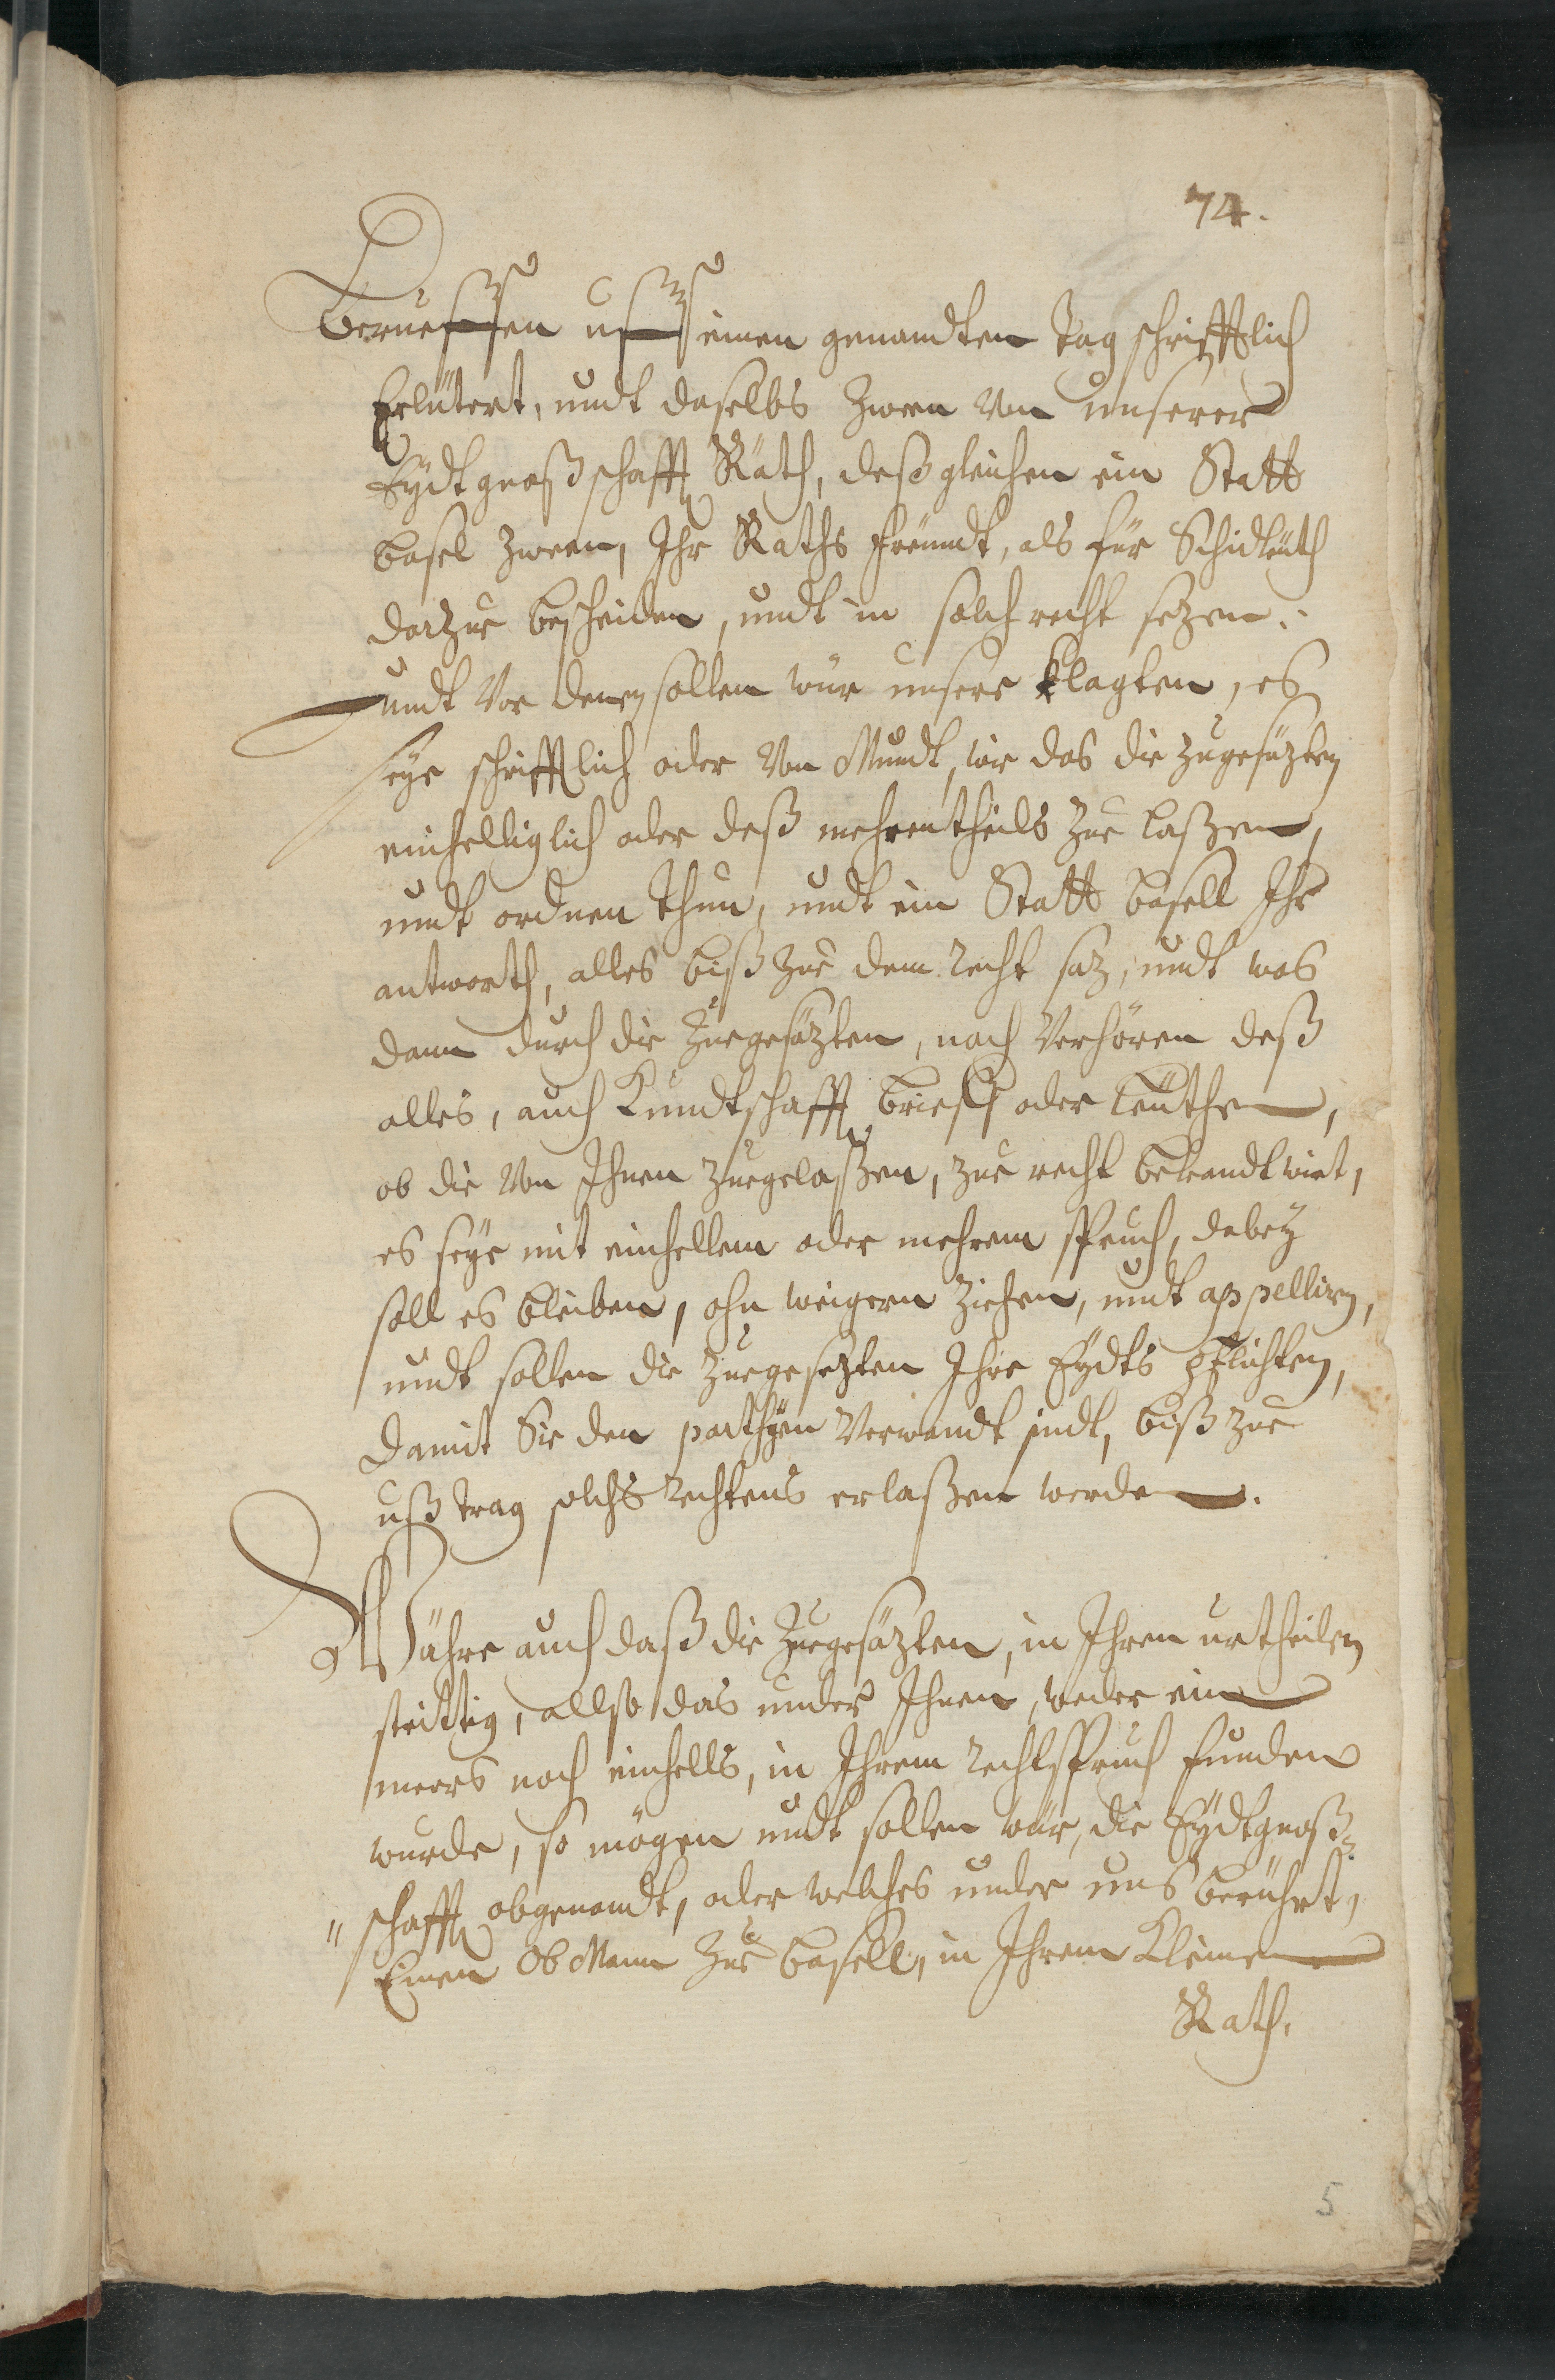 74.
Berueffen uff einen genandten Tag schrifftlich
Erlütert, undt daselbs Zween Von unserer
Eydtgnoßschafft Räth, deßgleichen ein Statt
Basel zween, Ihr Raths freündt, als für Schidleüth
darzue bescheiden, undt in solch recht sezen.
undt Vor denen sollen wür unsere klagten, es
seye schrifftlich oder Von Mundt, wie das die zugesäzten
einhelliglich oder deß mehrentheils zue laßen,
undt ordnen thun, undt ein Statt Basell Ihr
antworth, alles biß zue dem recht saz, undt was
dann durch die Zuegesäzten, nach Verhören deß
alles, auch Kundtschafft brieff oder leüthen,
ob die Von Ihnen zuegelaßen, zue recht bekandt wirt,
es seye mit einhellem oder mehrem spruch, dabey
soll es bleiben, ohn weigern ziehen, undt appelliren,
undt sollen die zuegesezten Ihre Eydts pflichten,
damit Sie den partheyen Verwandt sindt, biß zue
ußtrag solchs rechtens erlaßen werden.
Währe auch daß die Zuegesäzten, in Ihren urtheilen
strittig, allso das under Ihnen, weder ein
meers noch einhells, in Ihrem rechtspruch funden
wurde, so mögen undt sollen wür, die Eydtgnoß=
"schafft obgenandt, oder welches under uns berührt,
Einen Ob Mann zue Basell, in Ihrem Kleinen
Rath.
5